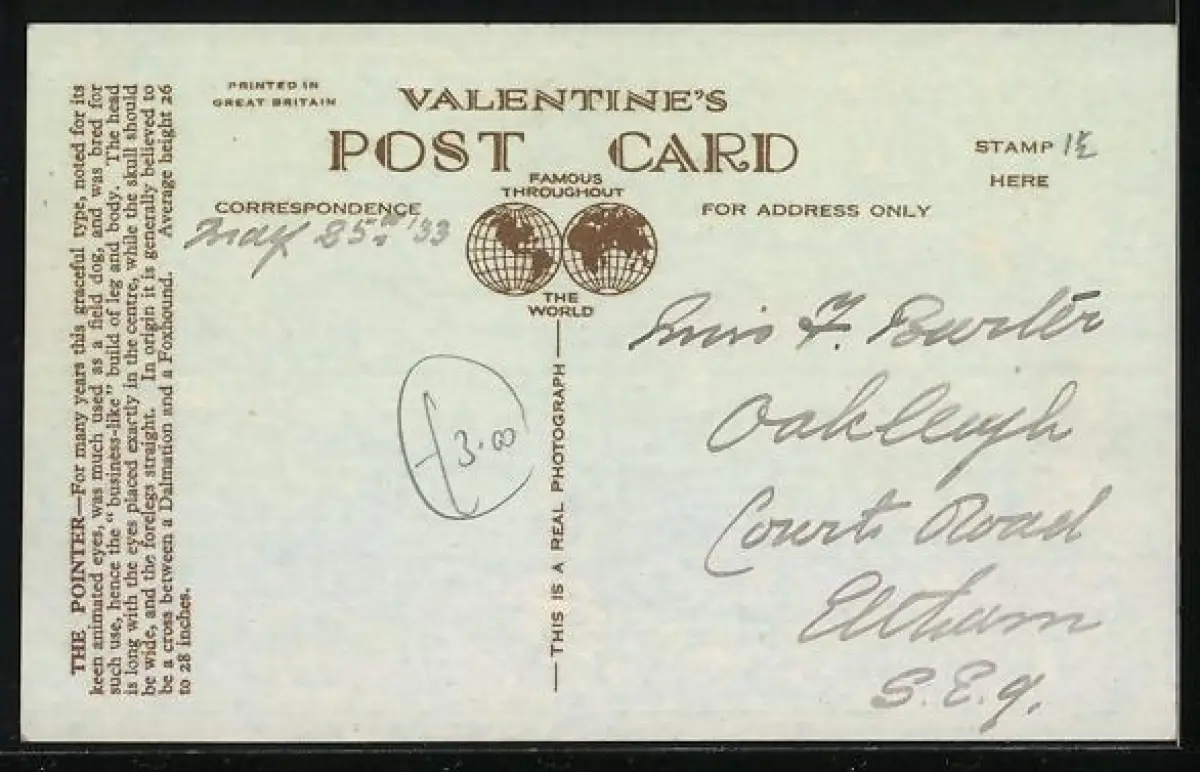 THE POINTER—For many years this graceful type, noted for its
keen animated eyes, was much used as a field dog, and was bred for
such use, hence the "business-like" build of leg and body. The head
is long with the eyes placed exactly in the centre, while the skull should
be wide, and the forelegs straight. In origin it is generally believed to
be a cross between a Dalmation and a Foxhound. Average height 26
to 28 inches.
PRINTED IN
GREAT BRITAIN
VALENTINE'S
POST CARD
FAMOUS
THROUGHOUT
THE
WORLD
STAMP 1½
HERE
CORRESPONDENCE
FOR ADDRESS ONLY
May 25th '33
£3.00
THIS IS A REAL PHOTOGRAPH
Miss F.
Oakleigh
Court Road
Eltham
S.E.9.